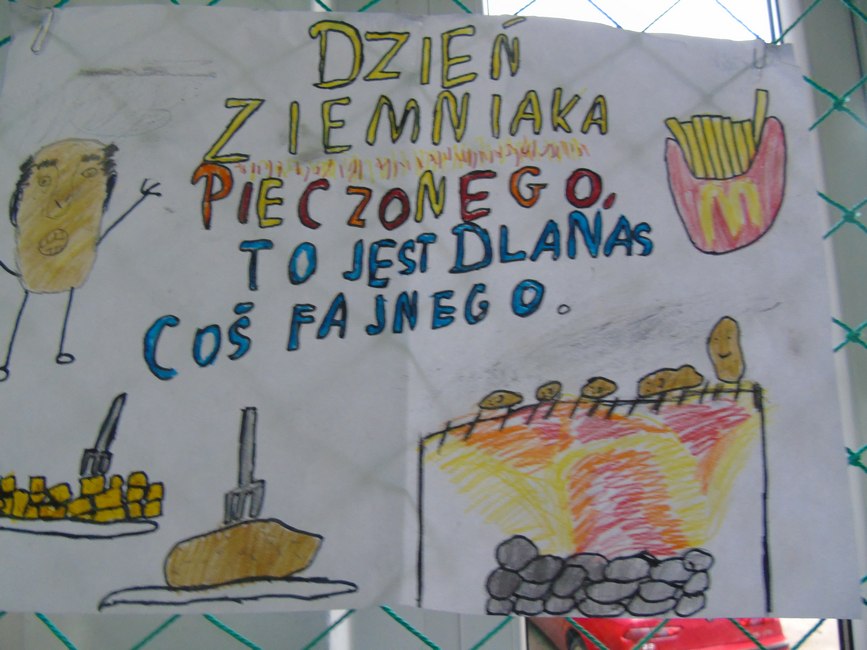 DZIEŃ
ZIEMNIAKA
PIECZONEGO.
TO JEST DLA NAS
COŚ FAJNEGO.
M